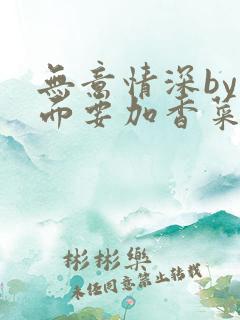 無意情深by
而要加香菜
彬彬樂
未任同意禁止轉載